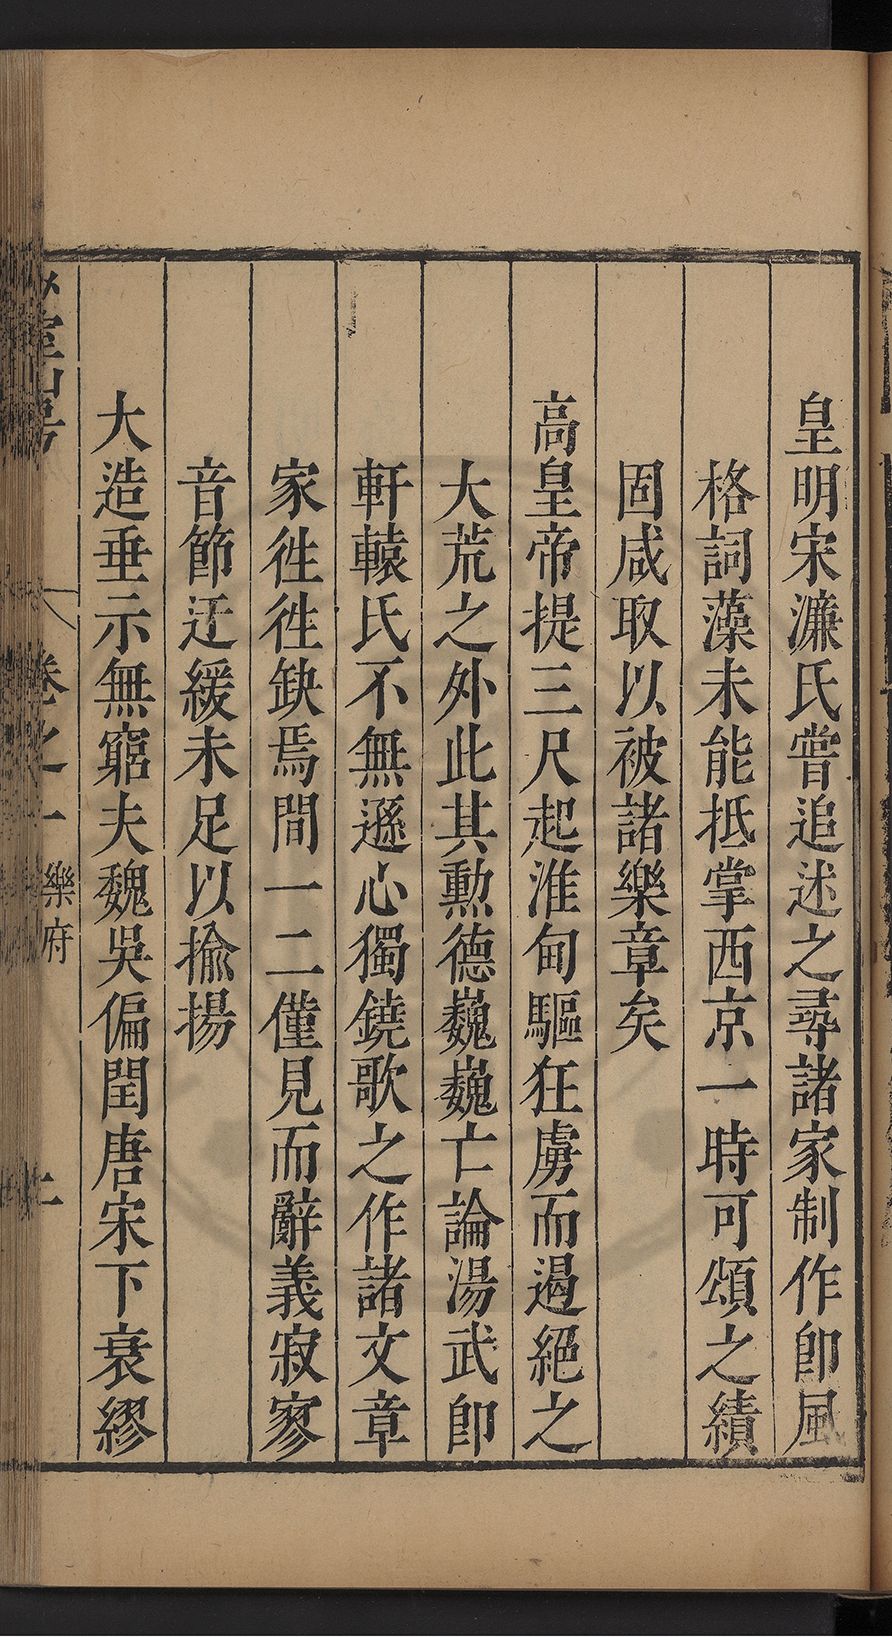 皇明宋濂氏嘗追述之尋諸家制作卽風
格詞藻未能抵掌西京一時可頌之績
固咸取以被諸樂章矣
高皇帝提三尺起淮甸驅狂虜而遏絕之
大荒之外此其勲德巍巍亡論湯武卽
軒轅氏不無遜心獨鐃歌之作諸文章
家徃徃缺焉間一二僅見而辭義寂寥
音節迂緩未足以揄揚
大造垂示無窮夫魏吳偏閏唐宋下衰繆
室山房 卷之一 樂府 二